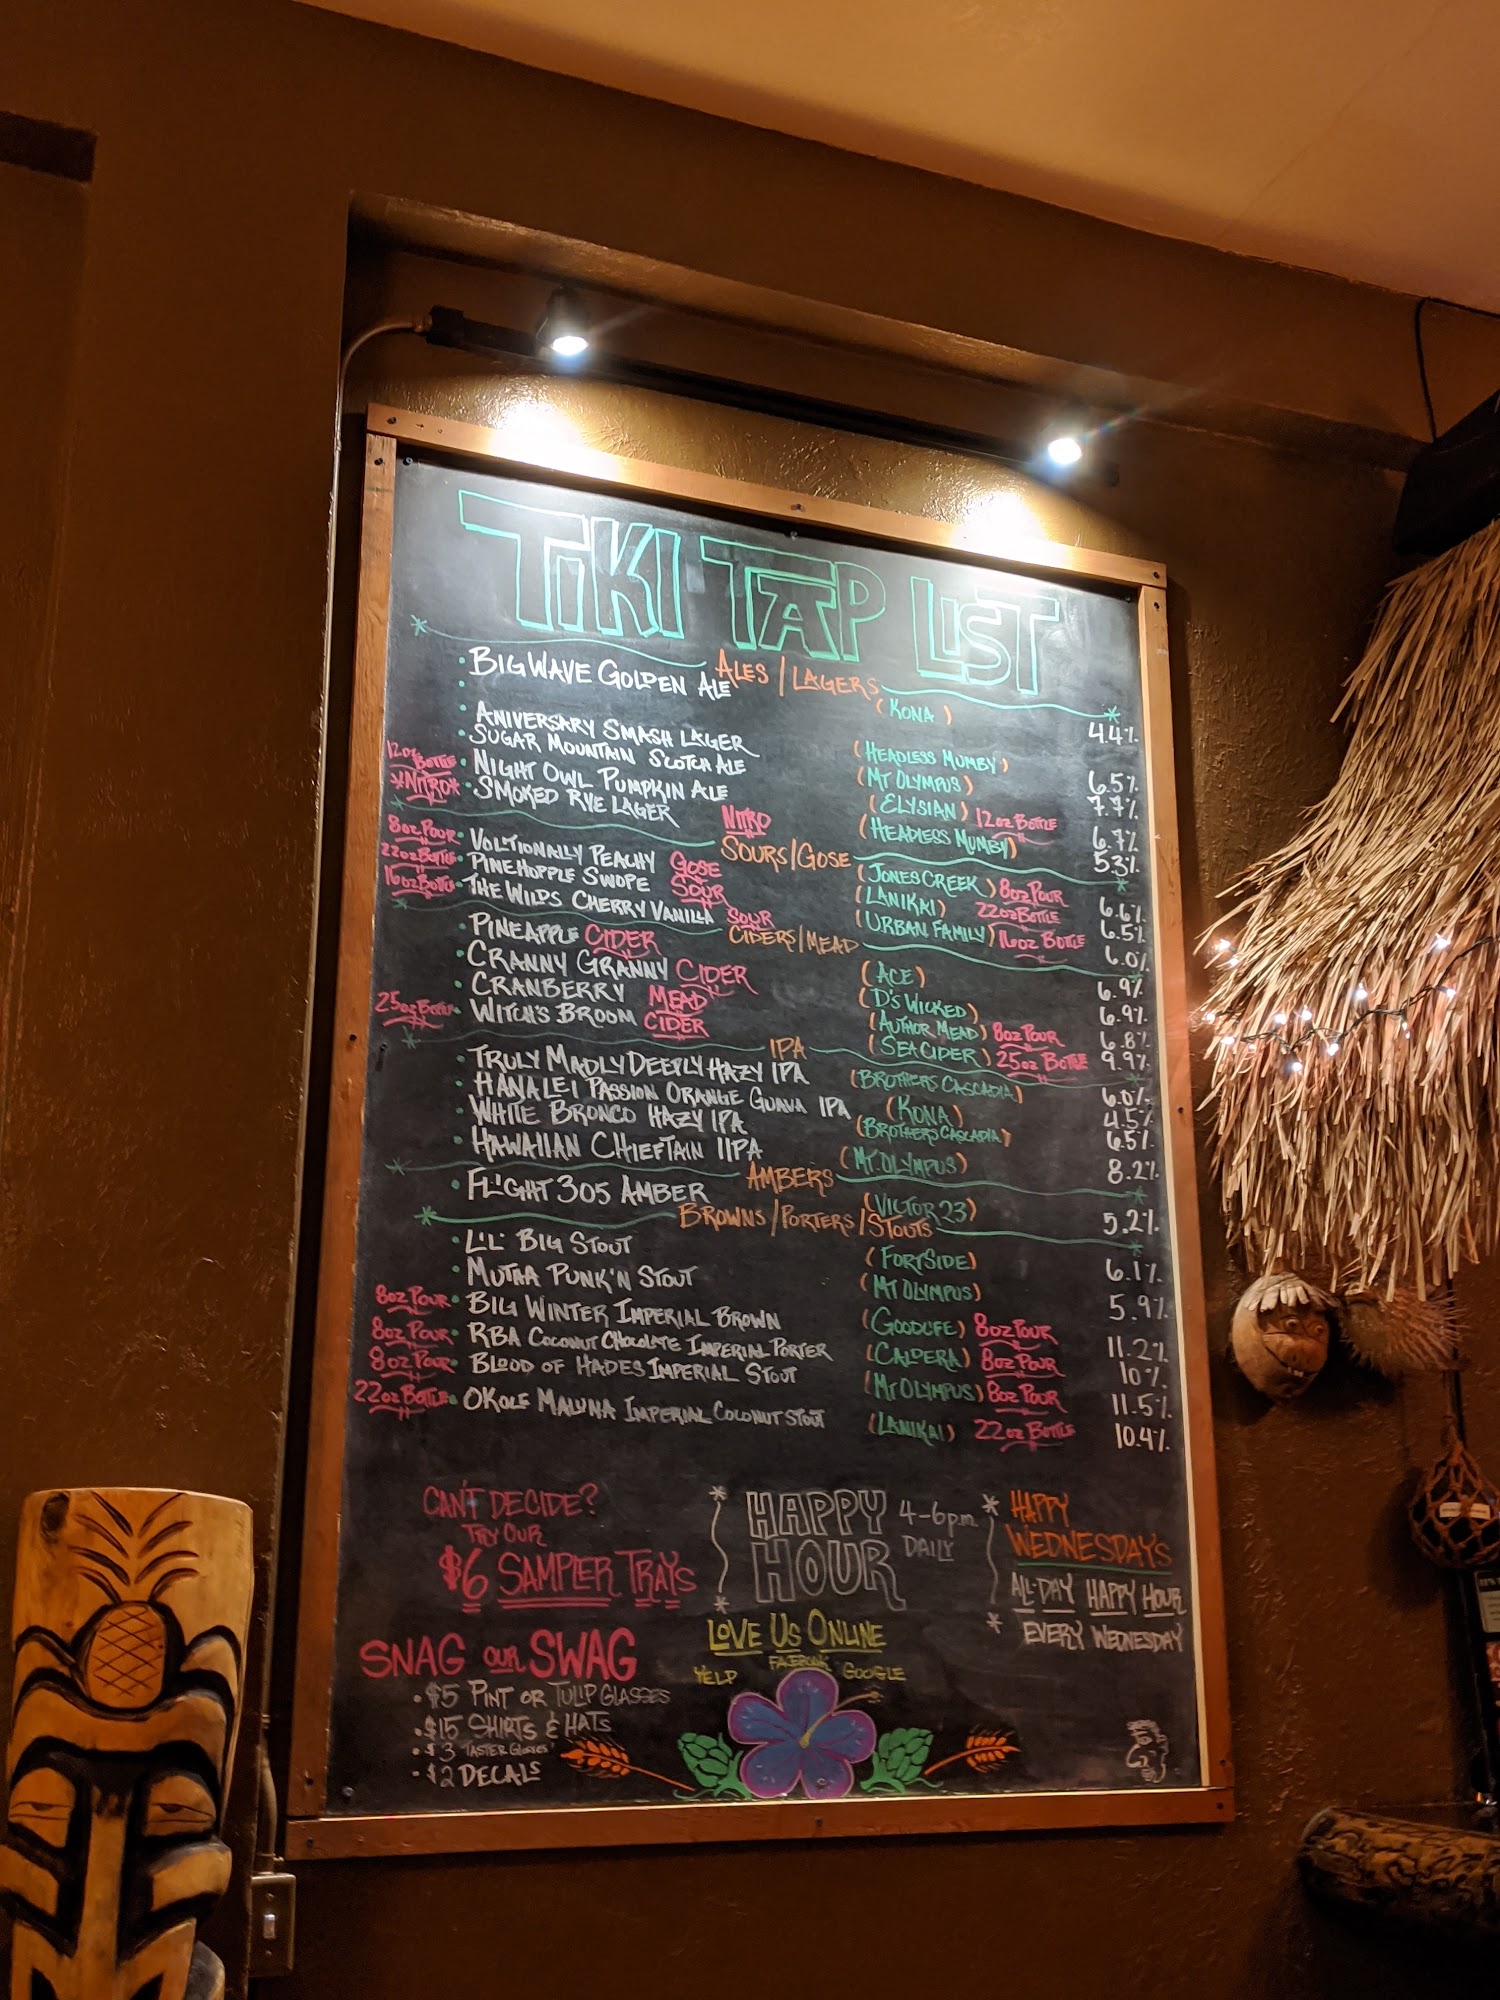 TIKI TAP LIST
ALES / LAGERS
• BIG WAVE GOLDEN ALE (KONA) 4.4%
• ANIVERSARY SMASH LAGER (HEADLESS MUMBY) 6.5%
• SUGAR MOUNTAIN SCOTCH ALE (MT OLYMPUS) 7.7%
12oz BOTTLE • NIGHT OWL PUMPKIN ALE (ELYSIAN) 12oz BOTTLE 6.7%
*NITRO* • SMOKED RYE LAGER NITRO (HEADLESS MUMBY) 5.3%
SOURS/GOSE
8oz POUR • VOLTIONALLY PEACHY GOSE (JONES CREEK) 8oz POUR 6.6%
22oz BOTTLE • PINEHOPPLE SWOPE SOUR (LANIKAI) 22oz BOTTLE 6.5%
16oz BOTTLE • THE WILDS CHERRY VANILLA SOUR (URBAN FAMILY) 16oz BOTTLE 6.0%
CIDERS/MEAD
• PINEAPPLE CIDER (ACE) 6.9%
• CRANNY GRANNY CIDER (D'S WICKED) 6.9%
• CRANBERRY MEAD (AUTHOR MEAD) 8oz POUR 6.8%
25oz BOTTLE • WITCH'S BROOM CIDER (SEA CIDER) 25oz BOTTLE 9.9%
IPA
• TRULY MADLY DEEPLY HAZY IPA (BROTHERS CASCADIA) 6.0%
• HANALEI PASSION ORANGE GUAVA IPA (KONA) 4.5%
• WHITE BRONCO HAZY IPA (BROTHERS CASCADIA) 6.5%
• HAWAIIAN CHIEFTAIN IIPA (MT. OLYMPUS) 8.2%
AMBERS
• FLIGHT 305 AMBER (VICTOR 23) 5.2%
BROWNS / PORTERS / STOUTS
• LIL' BIG STOUT (FORTSIDE) 6.1%
• MUTAA PUNK'N STOUT (MT OLYMPUS) 5.9%
8oz POUR • BIG WINTER IMPERIAL BROWN (GOODLIFE) 8oz POUR 11.2%
8oz POUR • RBA COCONUT CHOCOLATE IMPERIAL PORTER (CALDERA) 8oz POUR 10%
8oz POUR • BLOOD OF HADES IMPERIAL STOUT (MT OLYMPUS) 8oz POUR 11.5%
22oz BOTTLE • OKOLE MALUNA IMPERIAL COCONUT STOUT (LANIKAI) 22oz BOTTLE 10.4%
CAN'T DECIDE?
TRY OUR
$6 SAMPLER TRAYS
HAPPY HOUR
4-6pm
DAILY
HAPPY
WEDNESDAYS
ALL-DAY HAPPY HOUR
EVERY WEDNESDAY
LOVE US ONLINE
YELP FACEBOOK GOOGLE
SNAG OUR SWAG
• $5 PINT OR TULIP GLASSES
• $15 SHIRTS & HATS
• $3 TASTER GLASSES
• $2 DECALS